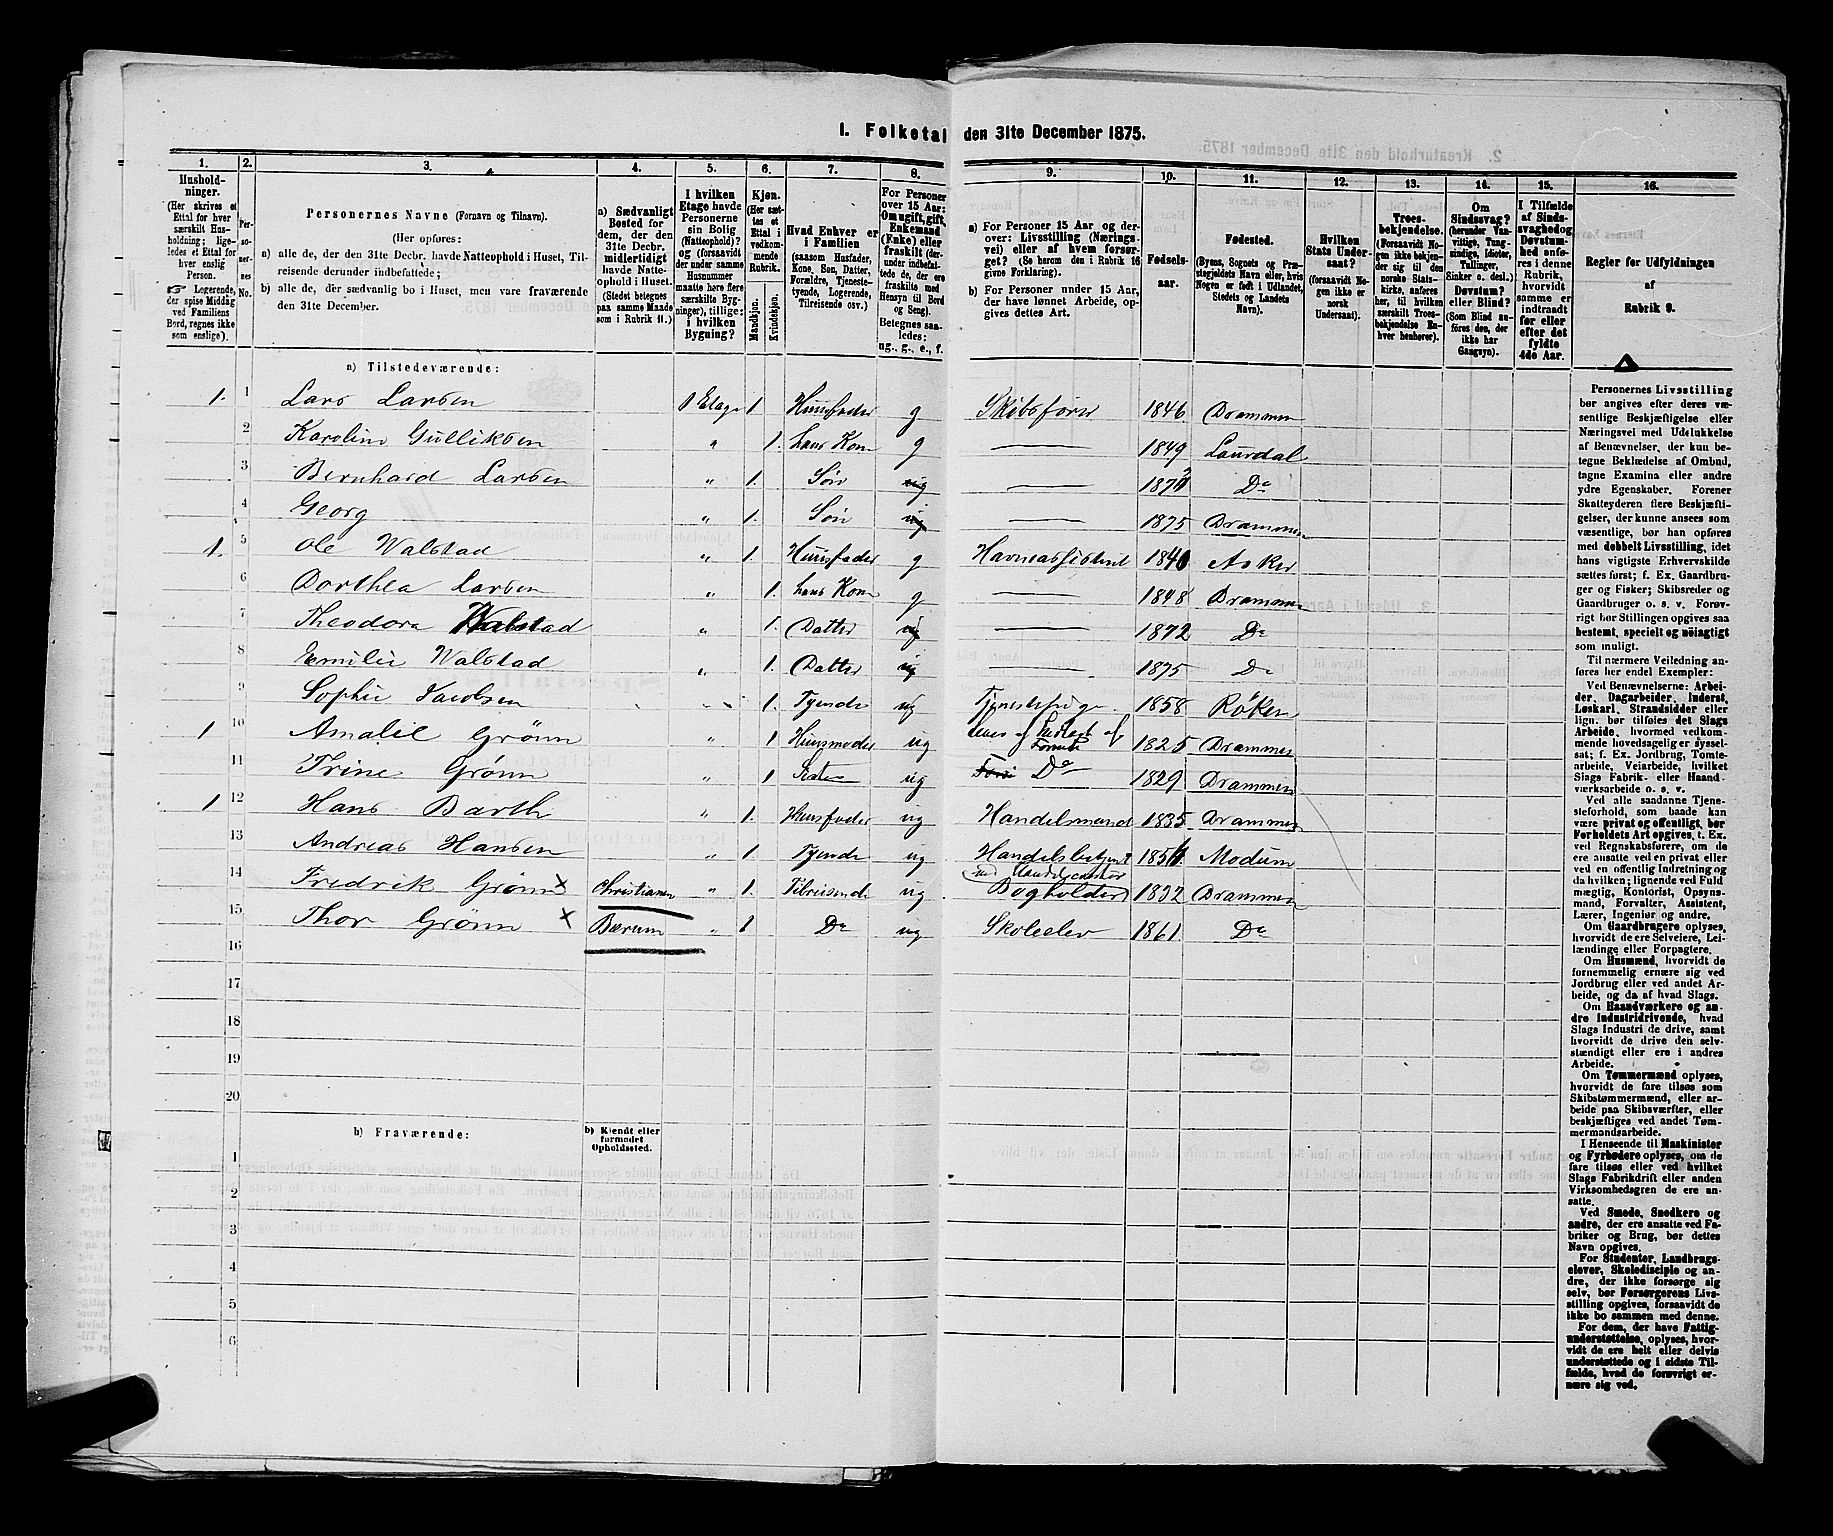 1. Folketal den 31te December 1875.
1. 2. 3. 4. 5. 6. 7. 8. 9. 10. 11. 12. 13. 14. 15. 16.
Hushold-
ninger.
(Her skrives et
Ettal for hver
særskilt Hus-
holdning; lige-
ledes et Ettal for
hver enslig
Person.
☞ Logerende,
der spise Middag
ved Familiens
Bord, regnes ikke
som enslige).
Per-
so-
ner-
nes
No.
Personernes Navne (Fornavn og Tilnavn).
(Her opføres:
a) alle de, der den 31te Decbr. havde Natteophold i Huset, Til-
reisende derunder indbefattede;
b) alle de, der sædvanlig bo i Huset, men vare fraværende
den 31te December.
a) Sædvanligt
Bosted for
dem, der den
31te Decbr.
midlertidigt
havde Natte-
ophold i Huset.
(Stedet betegnes
paa samme Maade
som i Rubrik 11.)
I hvilken
Etage havde
Personerne
sin Bolig
(Natteophold)?
og (forsaavidt
der under samme
Husnummer
maatte høre flere
særskilte Byg-
ninger), tillige:
i hvilken
Bygning?
Kjøn.
(Her sæt-
tes et
Ettal i
vedkom-
mende
Rubrik.
Mandkjøn.
Kvindekjøn.
Hvad Enhver er
i Familien
(saasom Husfader,
Kone, Søn, Datter,
Forældre, Tjeneste-
tyende, Logerende,
Tilreisende osv.)
For Personer
over 15 Aar:
Om ugift, gift,
Enkemand
(Enke) eller
fraskilt (der-
under indbefat-
tede de, der ere
fraskilte med
Hensyn til Bord
og Seng).
Betegnes saa-
ledes:
ug., g., e., f.
a) For Personer 15 Aar og der-
over: Livsstilling (Nærings-
vei) eller af hvem forsør-
get? (Se herom den i Rubrik 16
givne Forklaring).
b) For Personer under 15 Aar,
der have lønnet Arbeide, op-
gives dettes Art.
Fødsels-
aar.
Fødested.
(Byens, Sognets og Præ-
stegjeldets Navn eller, hvis
Nogen er født i Udlandet,
Stedets og Landets
Navn).
Hvilken
Stats Under-
saat?
(forsaavidt No-
gen ikke er
norsk
Undersaat).
Troes-
bekjendelse.
(Forsaavidt No-
gen ikke bekjen-
der sig til den
norske Stats-
kirke, anføres
her, til hvilken
særskilt Troes-
bekjendelse En-
hver henhører).
Om
Sindssvag?
(herunder Van-
vittige, Tung-
sindige, Idioter,
Tullinger,
Sinker o. desl.)
Døvstum?
eller Blind?
(Som Blind an-
føres den, der
ikke har
Gangsyn).
I Tilfælde
af Sinds-
svaghed og
Døvstum-
hed anfø-
res i denne
Rubrik,
hvorvidt
samme er
indtraadt
før eller
efter det
fyldte
4de Aar.
Regler for Udfyldningen
af
Rubrik 9.
a) Tilstedeværende:
1. 1 Lars Larsen 1 Etage 1. Huusfader g Skibsfører 1846 Drammen
2 Karoline Gulliksen " 1. hans Kone g — 1849 Laurdal
3 Bernhard Larsen " 1. Søn ug — Do
4 Georg " 1. Søn ug — 1875 Drammen
1. 5 Ole Walstad " 1. Huusfader g Havneassistent Asker
6 Dorthea Larsen " 1. hans Kone g — 1848 Drammen
7 Theodora Walstad " 1. Datter ug — 1872 Do
8 Emilie Walstad " 1. Datter ug — 1875 Do
9 Sophie Jacobsen " 1. Tyende ug Tjenestepige 1858 Røken
1 10 Amalie Grönn " 1 Huusmoder ug 1825 Drammen
11 Trine Grönn " 1 Søster ug Do 1829 Drammen
1 12 Hans Barth " 1. Huusfader ug Handelsmand 1835 Drammen
13 Andreas Hansen " 1 Tyende ug Handelsbetjent Modum
14 Fredrik Grönn × Christiania " 1. Tilreisende ug Bogholder ved Handelscontor 1832 Drammen
15 Thor Grönn × Bærum " 1 Do ug Skoleelev 1861 Do
16
18
19
20
b) Fraværende:
b) Kjendt eller
formodet
Opholdssted.
1
2
3
4
5
6
Personernes Livsstilling
bør angives efter deres væ-
sentlige Beskjæftigelse eller
Næringsvei med Udelukkelse
af Benævnelser, der kun be-
tegne Beklædelse af Ombud,
tagne Examina eller andre
ydre Egenskaber. Forener
Skatteyderen flere Beskjæfti-
gelser, der kunne ansees som
væsentlige, bør han opføres
med dobbelt Livsstilling, idet
hans vigtigste Erhvervskilde
sættes først; f. Ex. Gaardbru-
ger og Fisker; Skibsreder og
Gaardbruger o. s. v. Forøv-
rigt bør Stillingen opgives saa
bestemt, specielt og nöiagtigt
som muligt.
Til nærmere Veiledning an-
føres her endel Exempler:
Ved Benævnelserne: Arbei-
der, Dagarbeider, Inderst,
Løskarl, Strandsidder eller
lign. bør tilføies det Slags
Arbeide, hvormed vedkom-
mende hovedsagelig er syssel-
sat; f. Ex. Jordbrug, Tomte-
arbeide, Veiarbeide, hvilket
Slags Fabrik- eller Haand-
værksarbeide o. s. v.
Ved alle saadanne Tjene-
steforhold, som baade kan
være privat og offentligt, bør
Forholdets Art opgives, f. Ex.
ved Regnskabsførere, om de
ere ansatte ved en privat eller
ved en offentlig Indretning og
da hvilken; lignende ved Fuld
mægtig, Kontorist, Opsyns-
mand, Forvalter, Assistent,
Lærer, Ingeniør og andre.
Om Gaardbrugere oplyses,
hvorvidt de ere Selveiere, Lei-
lændinge eller Forpagtere.
Om Husmænd, hvorvidt de
fornemmelig ernære sig ved
Jordbrug eller ved andet Ar-
beide, og da af hvad Slags.
Om Haandværkere og an-
dre industridrivende, hvad
Slags Industri de drive, samt
hvorvidt de drive den selv-
stændigt eller ere i andres
Arbeide.
Om Tømmermænd oplyses,
hvorvidt de fare tilsøs som
Skibstømmermænd, eller ar-
beide paa Skibsværfter, eller
beskjæftiges ved andet Tøm-
mermandsarbeide.
I Henseende til Maskinister
og Fyrbødere oplyses, om de
fare tilsøs eller ved hvilket
Slags Fabrikdrift eller anden
Virksomhedsgren de ere an-
satte.
Ved Smede, Snedkere og
andre, der ere ansatte ved Fa-
briker og Brug, bør dettes
Navn opgives.
For Studenter, Landbrugs-
elever, Skoledisciple og an-
dre, der ikke forsørge sig
selv, bør Forsørgerens Livs-
stilling opgives, forsaavidt de
ikke bo sammen med denne.
For dem, der have Fattig-
understøttelse, oplyses, hvor-
vidt de ere helt eller delvis
understøttede og i sidste Til-
fælde, hvad de forøvrigt er-
nære sig ved.